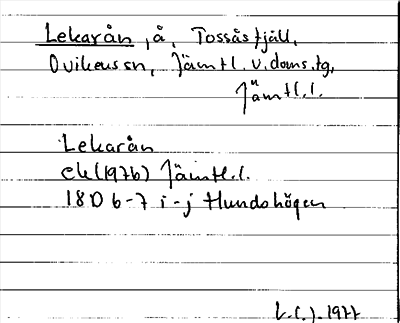 Lekarån, å, Tossåsfjäll,
Ovikens sn, Jämtl. v. doms.tg,
Jämtl.l.
Lekarån
ek (1976) Jämtl.l.
18D 6-7 i-j Hundshögen
1977